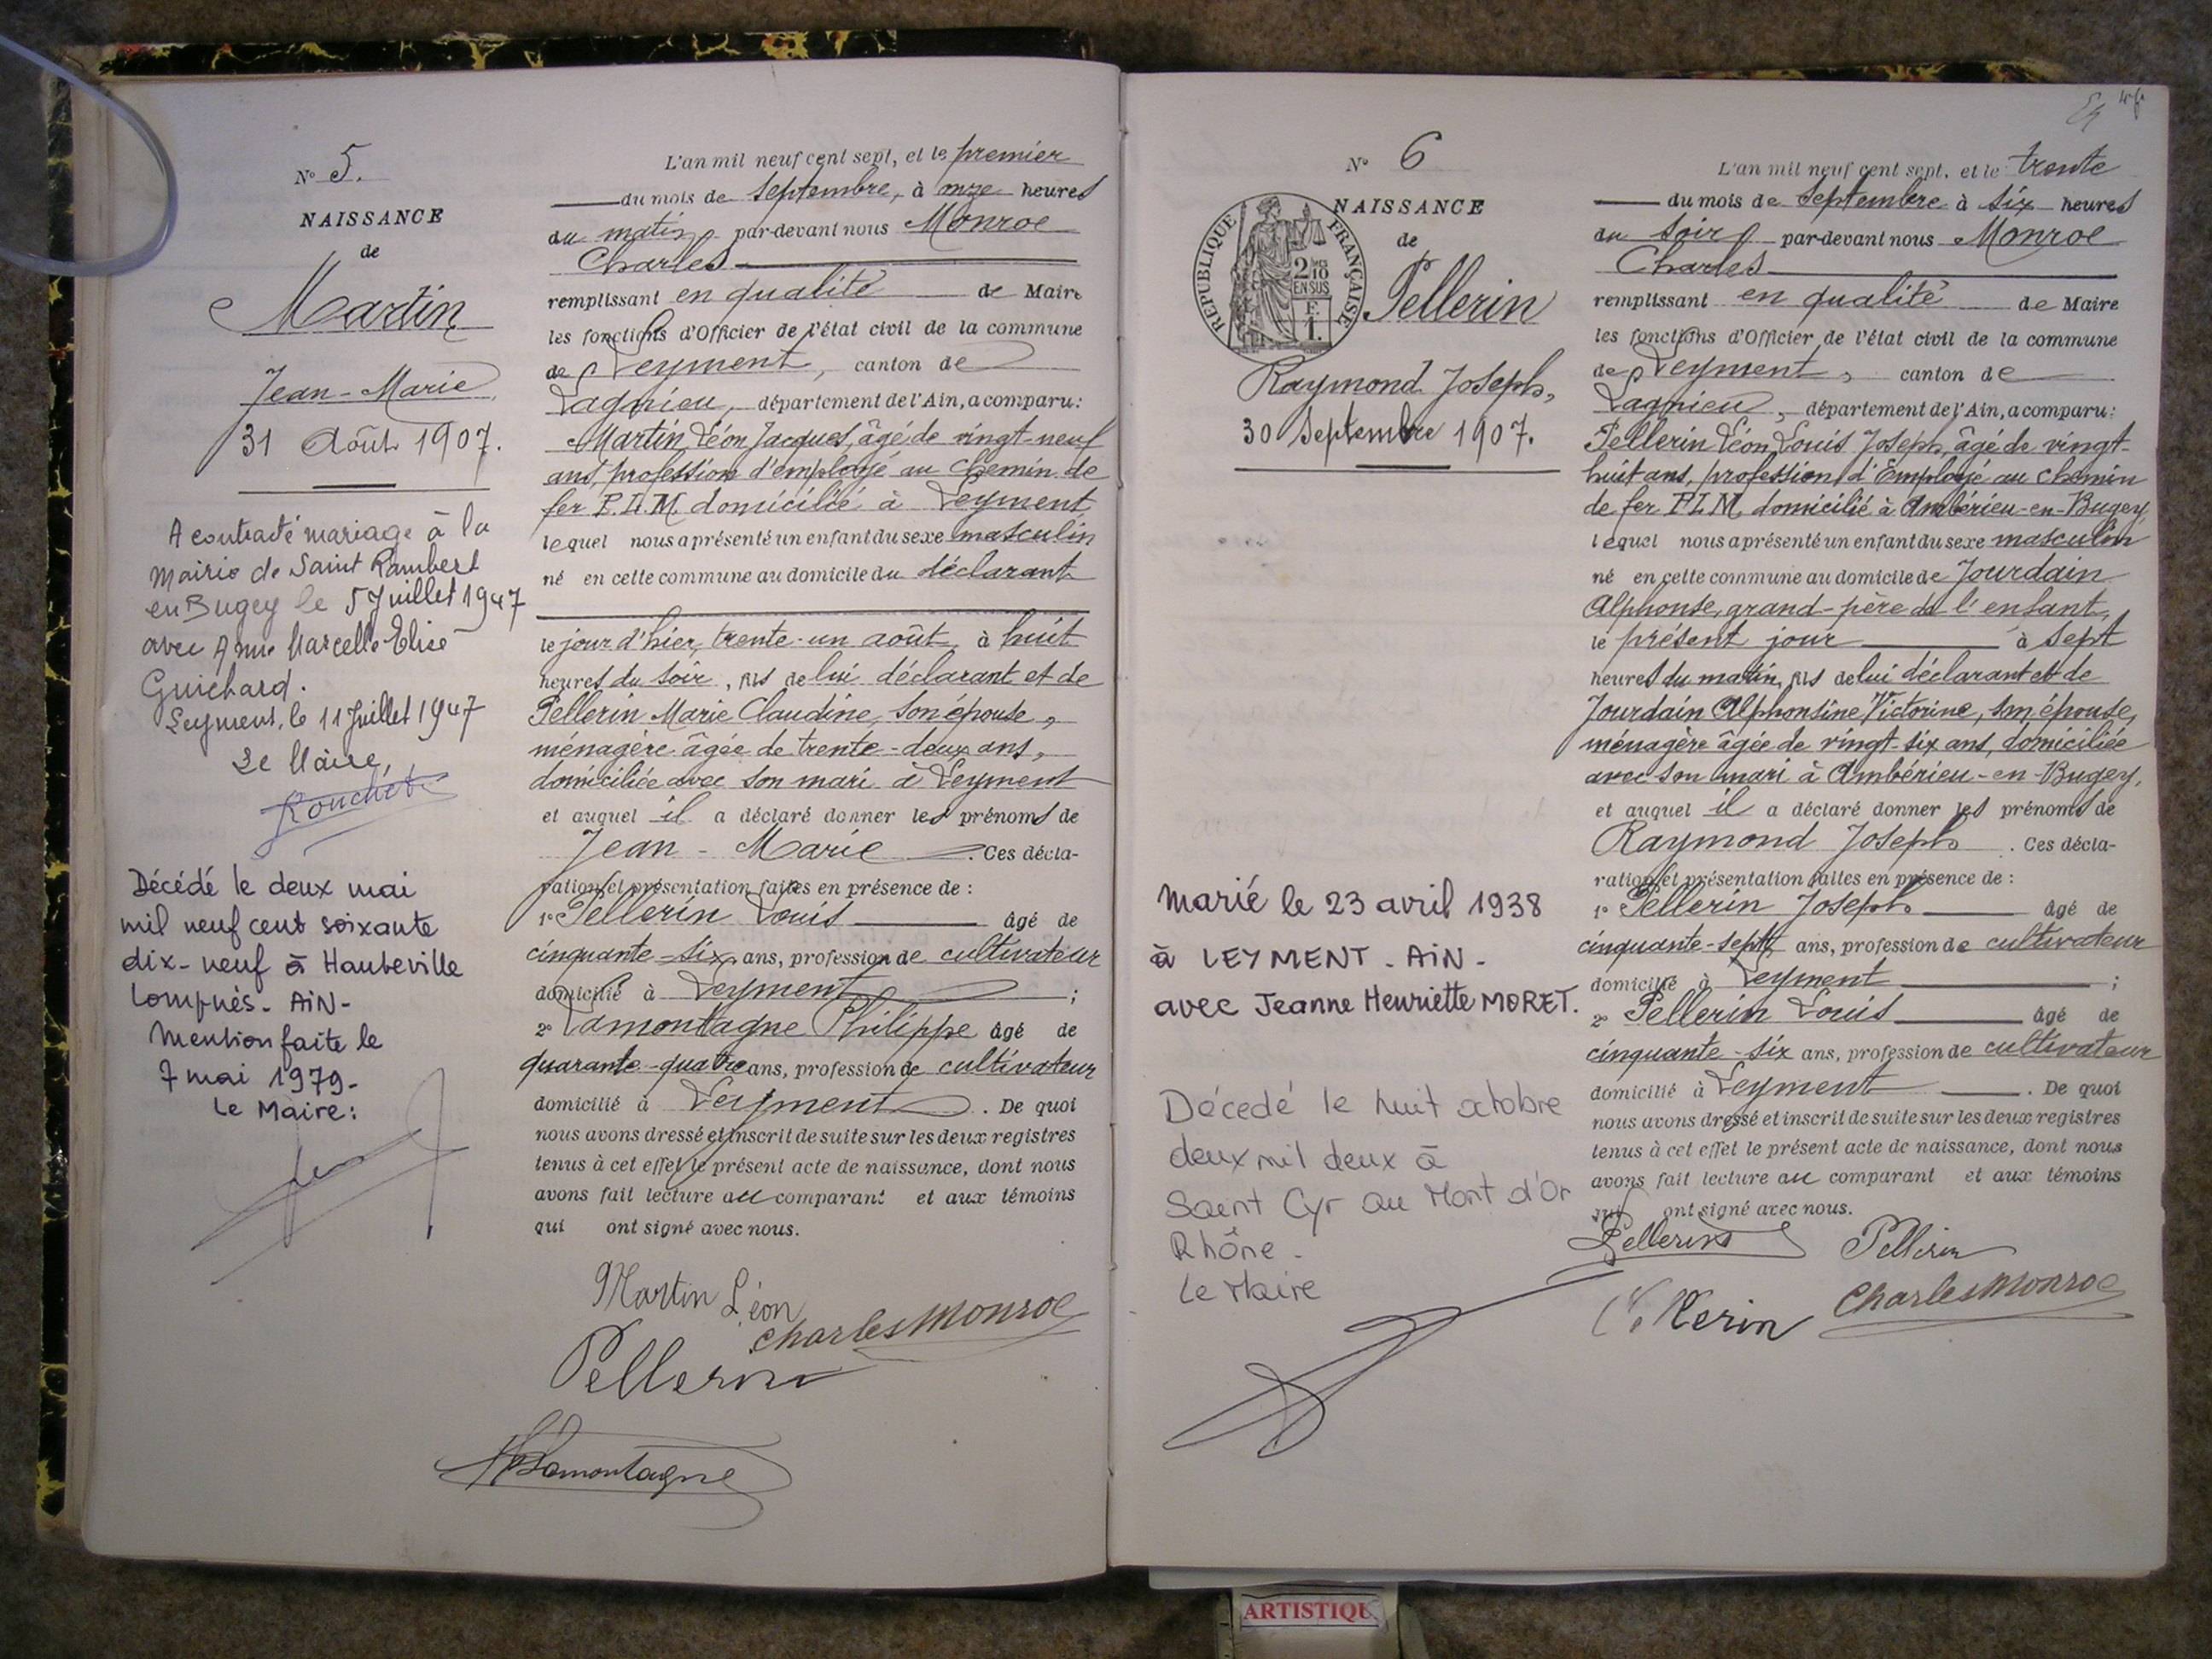 N° 5.
NAISSANCE
de
Martin
Jean-Marie
31 Août 1907.
A contracté mariage à la
Mairie de Saint Rambert
en Bugey le 5 Juillet 1947
avec Anne Marcelle Elise
Guichard.
Leyment, le 11 Juillet 1947
Le Maire,
Décédé le deux mai
mil neuf cent soixante
dix-neuf à Hauteville
Lompnès - AiN -
Mention faite le
7 mai 1979 -
Le Maire :
L'an mil neuf cent sept, et le premier
du mois de Septembre, à onze heures
du matin par-devant nous Monroe
Charles
remplissant en qualité de Maire
les fonctions d'Officier de l'état civil de la commune
de Leyment, canton de
Lagnieu, département de l'Ain, a comparu :
Martin Léon Jacques, âgé de vingt-neuf
ans, profession d'employé au Chemin de
fer P.L.M. domicilié à Leyment
lequel nous a présenté un enfant du sexe masculin
né en cette commune au domicile du déclarant
le jour d'hier, trente-un août, à huit
heures du soir, fils de lui déclarant et de
Pellerin Marie Claudine, son épouse,
ménagère âgée de trente-deux ans,
domiciliée avec son mari à Leyment
et auquel il a déclaré donner les prénoms de
Jean-Marie . Ces décla-
ration et présentation faites en présence de :
1° Pellerin Louis âgé de
cinquante-six ans, profession de cultivateur
domicilié à Leyment ;
2° Lamontagne Philippe âgé de
quarante-quatre ans, profession de cultivateur
domicilié à Leyment . De quoi
nous avons dressé et inscrit de suite sur les deux registres
tenus à cet effet le présent acte de naissance, dont nous
avons fait lecture au comparant et aux témoins
qui ont signé avec nous.
Martin Léon
Charles Monroe
Pellerin
Lamontagne
N° 6
NAISSANCE
de
REPUBLIQUE FRANÇAISE
2/10
EN SUS
F.
1.
Pellerin
Raymond Joseph,
30 Septembre 1907.
Marié le 23 avril 1938
à LEYMENT - AiN -
avec Jeanne Henriette MORET.
Décedé le huit octobre
deux mil deux à
Saint Cyr au Mont d'Or
Rhône -
Le Maire
L'an mil neuf cent sept, et le trente
du mois de Septembre à six heures
du soir par-devant nous Monroe
Charles
remplissant en qualité de Maire
les fonctions d'Officier de l'état civil de la commune
de Leyment, canton de
Lagnieu, département de l'Ain, a comparu :
Pellerin Léon Louis Joseph, âgé de vingt-
huit ans, profession d'Employé au chemin
de fer P.L.M. domicilié à Ambérieu-en-Bugey
lequel nous a présenté un enfant du sexe masculin
né en cette commune au domicile de Jourdain
Alphonse, grand-père de l'enfant,
le présent jour à sept
heures du matin, fils de lui déclarant et de
Jourdain Alphonsine Victorine, son épouse,
ménagère âgée de vingt-six ans, domiciliée
avec son mari à Ambérieu-en-Bugey,
et auquel il a déclaré donner les prénoms de
Raymond Joseph . Ces décla-
ration et présentation faites en présence de :
1° Pellerin Joseph âgé de
cinquante-sept ans, profession de cultivateur
domicilié à Leyment ;
2° Pellerin Louis âgé de
cinquante-six ans, profession de cultivateur
domicilié à Leyment . De quoi
nous avons dressé et inscrit de suite sur les deux registres
tenus à cet effet le présent acte de naissance, dont nous
avons fait lecture au comparant et aux témoins
qui ont signé avec nous.
Pellerin Pellerin
Charles Monroe
ARTISTIQU